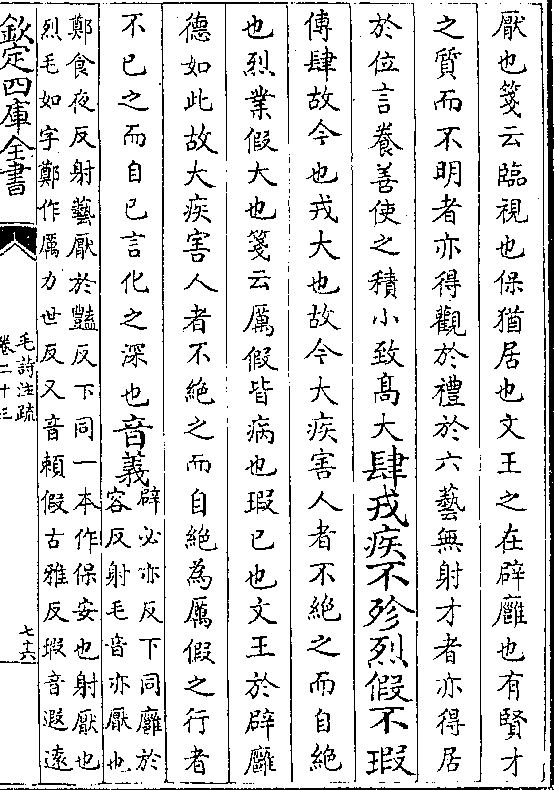 厭也箋云臨視也保猶居也文王之在辟廱也有賢才
之質而不明者亦得觀於禮於六藝無射才者亦得居
於位言養善使之積小致髙大肆戎疾不殄烈假不瑕
傳肆故今也戎大也故今大疾害人者不絶之而自絶
也烈業假大也箋云厲假皆病也瑕已也文王於辟廱
德如此故大疾害人者不絶之而自絶為厲假之行者
不已之而自已言化之深也音義
辟必亦反下同廱於
容反射毛音亦厭也
鄭食夜反射藝厭於豔反下同一本作保安也射厭也
烈毛如字鄭作厲力世反又音賴假古雅反瑕音遐遠
欽定四庫全書
毛詩注疏
卷二十三
七十六